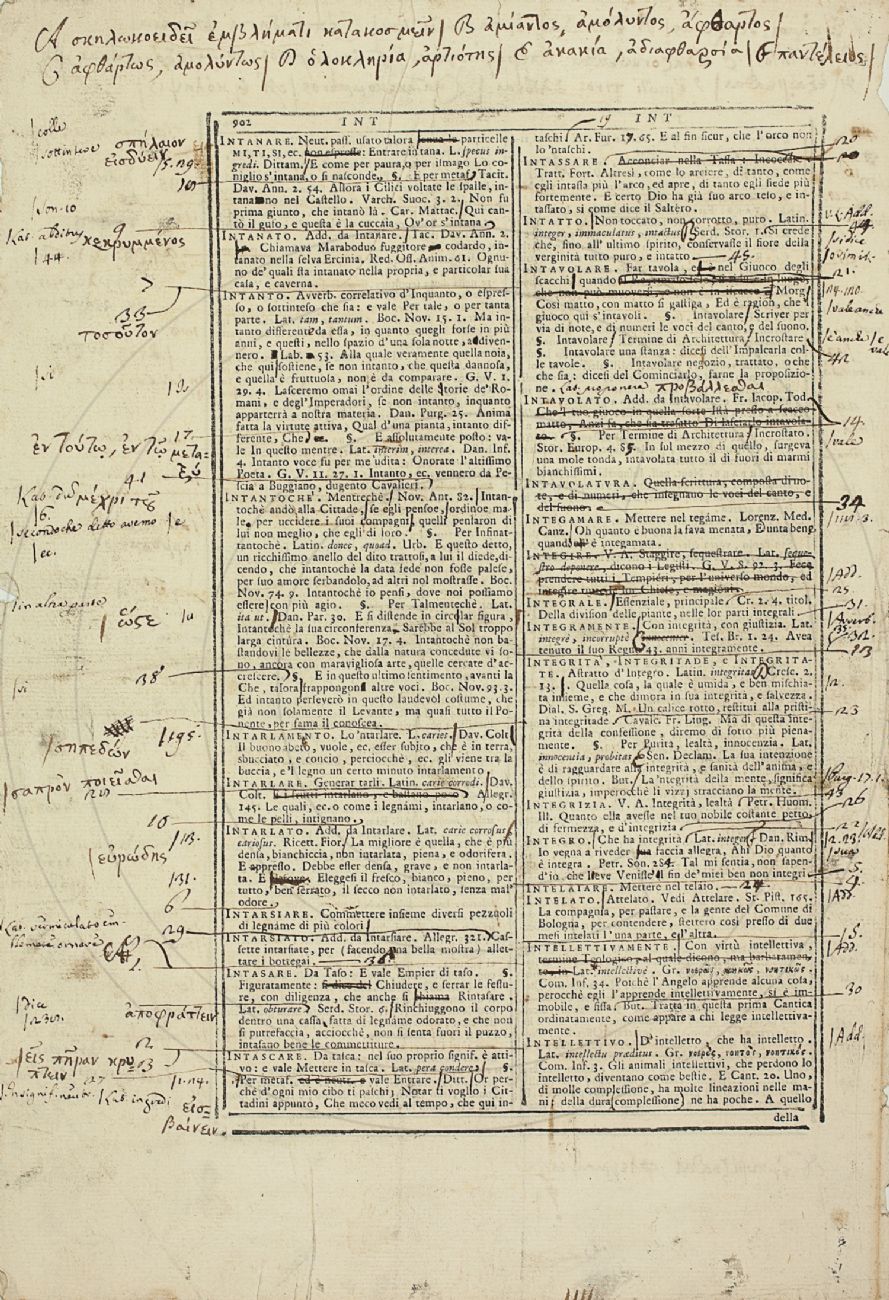 σκηλωκοειδεῖ ἐμβλήματι κατακοσμεῖν / B ἀμίαντος, ἀμόλυντος, ἄφθαρτος /
ἀφθάρτως, ἀμολύντως / D ὁλοκληρία, ἀρτιότης / E ἀκακία, ἀδιαφθαρσία / παντέλειος /
902 INT
INTANARE. Neut. pass. usato talora senza le particelle
MI, TI, SI, ec. non espresse: Entrare in tana. L. specus in-
gredi. Dittam. E come per paura, o per ismago Lo co-
niglio s'intana, o si nasconde. §. E per metaf. Tacit.
Dav. Ann. 2. 54. Allora i Cilici voltate le spalle, in-
tanano nel Castello. Varch. Suoc. 3. 2. Non fu
prima giunto, che intanò là. Car. Mattac. Qui can-
tò il gufo, e questa è la cuccaia, Ov'or s'intana
INTANATO. Add. da Intanare. Tac. Dav. Ann. 2.
Chiamava Maraboduo fuggitore codardo, in-
tanato nella selva Ercinia. Red. Oss. Anim. 61. Ognu-
no de' quali sta intanato nella propria, e particolar sua
casa, e caverna.
INTANTO. Avverb. correlativo d'Inquanto, o espres-
so, o sottinteso che sia: e vale Per tale, o per tanta
parte. Lat. tam, tantum. Boc. Nov. 15. 1. Ma in-
tanto differente da essa, in quanto quegli forse in più
anni, e questi, nello spazio d'una sola notte, addiven-
nero. Lab. 53. Alla quale veramente quella noia,
che qui sostiene, se non intanto, che questa dannosa,
e quella è fruttuosa, non è da comparare. G. V. 1.
29. 4. Lasceremo omai l'ordine delle Storie de' Ro-
mani, e degl'Imperadori, se non intanto, inquanto
apparterrà a nostra materia. Dan. Purg. 25. Anima
fatta la virtute attiva, Qual d'una pianta, intanto dif-
ferente, Che §. E assolutamente posto: va-
le In questo mentre. Lat. interim, interea. Dan. Inf.
4. Intanto voce fu per me udita: Onorate l'altissimo
Poeta. G. V. 11. 27. 1. Intanto, ec. vennero da Pe-
scia a Buggiano, dugento Cavalieri.
INTANTOCHÈ. Mentrechè. Nov. Ant. 82. Intan-
tochè andò alla Cittade, se egli pensoe, ordinoe ma-
le, per uccidere i suoi compagni, quelli pensaron di
lui non meglio, che egli di loro. §. Per Infinat-
tantochè. Latin. donec, quoad. Urb. E questo detto,
un ricchissimo anello del dito trattosi, a lui il diede, di-
cendo, che intantochè la data fede non fosse palese,
per suo amore serbandolo, ad altri nol mostrasse. Boc.
Nov. 74. 9. Intantochè io pensi, dove noi possiamo
essere con più agio. §. Per Talmentechè. Lat.
ita ut. Dan. Par. 30. E si distende in circolar figura,
Intantochè la sua circonferenza, Sarebbe al Sol troppo
larga cintura. Boc. Nov. 17. 4. Intantochè non ba-
standovi le bellezze, che dalla natura concedute vi so-
no, ancora con maravigliosa arte, quelle cercate d'ac-
crescere. §. E in questo ultimo sentimento, avanti la
Che, talora frappongonsi altre voci. Boc. Nov. 93. 3.
Ed intanto perseverò in questo laudevol costume, che
già non solamente il Levante, ma quasi tutto il Po-
nente, per fama il conoscea.
INTARLAMENTO. Lo 'ntarlare. L. caries. Dav. Colt.
Il buono abeto, vuole, ec. esser subito, che è in terra,
sbucciato, e concio, perciocchè, ec. gli viene tra la
buccia, e 'l legno un certo minuto intarlamento
INTARLARE. Generar tarli. Latin. carie corrodi. Dav.
Colt. Allegr.
145. Le quali, ec. o come i legnami, intarlano, o co-
me le pelli, intignano.
INTARLATO. Add. da Intarlare. Lat. carie corrosus,
cariosus. Ricett. Fior. La migliore è quella, che è più
densa, bianchiccia, non intarlata, piena, e odorifera.
E appresso. Debbe esser densa, grave, e non intarla-
ta. E Eleggesi il fresco, bianco, pieno, per
tutto, ben serrato, il secco non intarlato, senza mal'
odore.
INTARSIARE. Commettere insieme diversi pezzuoli
di legname di più colori
INTARSIATO. Add. da Intarsiare. Allegr. 321. Cas-
sette intarsiate, per (facendo una bella mostra) allet-
tare i bottegai. 36
INTASARE. Da Taso: E vale Empier di taso. §.
Figuratamente: si dico del Chiudere, e serrar le fessu-
re, con diligenza, che anche si chiama Rintasare.
Lat. obturare. Serd. Stor. 6. Rinchiuggono il corpo
dentro una cassa, fatta di legname odorato, e che non
si putrefaccia, acciocchè, non si senta fuori il puzzo,
intasano bene le commettiture.
INTASCARE. Da tasca: nel suo proprio signif. è atti-
vo: e vale Mettere in tasca. Lat. pera condere. §.
Per metaf. ed è neutr. e vale Entrare. Ditt. Or per-
chè d'ogni mio cibo ti paschi, Notar ti voglio i Cit-
tadini appunto, Che meco vedi al tempo, che qui in-
19 INT
taschi. Ar. Fur. 17. 65. E al fin sicur, che l'orco non
lo 'ntaschi.
INTASSARE. Acconciar nella Tassa: Incoccare.
Tratt. Fort. Altresì, come lo arciere, di tanto, come
egli intassa più l'arco, ed apre, di tanto egli fiede più
fortemente. E certo Dio ha già suo arco teso, e in-
tassato, si come dice il Saltero.
INTATTO. Non toccato, non corrotto, puro. Latin.
integer, immaculatus, intactus. Serd. Stor. 1. Si crede
che, fino all'ultimo spirito, conservasse il fiore della
verginità tutto puro, e intatto 45.
INTAVOLARE. Far tavola, e è nel Giuoco degli
scacchi quando
Morg
Così matto, con matto si gastiga, Ed è ragion, che 'l
giuoco qui s'intavoli. §. Intavolare. Scriver per
via di note, e di numeri le voci del canto, e del suono.
§. Intavolare Termine di Architettura Incrostare.
§. Intavolare una stanza: dicesi dell'Impalcarla col-
le tavole. §. Intavolare negozio, trattato, o che
che sia: dicesi del Cominciarlo, farne la proposizio-
ne. προβάλλεσθαι
INTAVOLATO. Add. da Intavolare. Fr. Iacop. Tod.
Che 'l tuo giuoco in quella forte Istà presso a scacco
matto, Anzi fa, che sia trasatto Di lasciarlo intavola-
to. §. Per Termine di Architettura Incrostato.
Stor. Europ. 4. 85. In sul mezzo di quello, surgeva
una mole tonda, intavolata tutto il di fuori di marmi
bianchissimi.
INTAVOLATURA. Quella scrittura, composta di no-
te, e di numeri, che insegnano le voci del canto, e
del suono.
INTEGAMARE. Mettere nel tegame. Lorenz. Med.
Canz. Oh quanto è buona la fava menata, E'unta ben,
quando è integamata.
INTEGIRE. V. A. Staggire, sequestrare. Lat. seque-
stro deponere, dicono i Legisti. G. V. 8. 92. 3. Fece
prendere tutti i Tempieri, per l'universo mondo, ed
integire tutte lor Chiese, e magioni.
INTEGRALE. Essenziale, principale. Cr. 2. 4. titol.
Della division delle piante, nelle lor parti integrali.
INTEGRAMENTE. Con integrità, con giustizia. Lat.
integrè, incorruptè. Tes. Br. 1. 24. Avea
tenuto il suo Regno 43. anni integramente.
INTEGRITÀ, INTEGRITADE, e INTEGRITA-
TE. Astratto d'Integro. Latin. integritas. Cresc. 2.
13. 1. Quella cosa, la quale è umida, e ben mischia-
ta insieme, e che dimora in sua integrità, e salvezza.
Dial. S. Greg. M. Un calice rotto, restituì alla pristi-
na integritade. Cavalc. Fr. Ling. Ma di questa inte-
grità della confessione, diremo di sotto più piena-
mente. §. Per Purità, lealtà, innocenzia. Lat.
innocentia, probitas. Sen. Declam. La sua intenzione
è di ragguardare alla integrità, e sanità dell'anima, e
dello spirito. But. La integrità della mente, significa
giustizia, imperocchè li vizzj stracciano la mente.
INTEGRIZIA. V. A. Integrità, lealtà. Petr. Huom.
Ill. Quanto ella avesse nel tuo nobile costante petto
di fermezza, e d'integrizia
INTEGRO. Che ha integrità. Lat. integer. Dan. Rim.
Io vegna a riveder sua faccia allegra, Ahi Dio quanto
è integra. Petr. Son. 284. Tal mi sentia, non sapen-
d'io, che lieve Venisse 'l fin de' miei ben non integri
INTELAIARE. Mettere nel telaio. 24.
INTELATO. Attelato. Vedi Attelare. St. Pist. 165.
La compagnia, per passare, e la gente del Comune di
Bologna, per contendere, stettero così presso di due
mesi intelati l'una parte, e l'altra.
INTELLETTIVAMENTE. Con virtù intellettiva,
termine Teologico, al quale dicono, ma barbaramen-
te, in Lat. intellectivè. Gr. νοερῶς, νοητικῶς.
Com. Inf. 34. Poichè l'Angelo apprende alcuna cosa,
perocchè egli l'apprende intellettivamente, sì è im-
mobile, e fissa. But. Tratta in questa prima Cantica
ordinatamente, come appare a chi legge intellettiva-
mente.
INTELLETTIVO. D'intelletto, che ha intelletto.
Lat. intellectu præditus. Gr. νοερός, νοητός, νοητικός.
Com. Inf. 3. Gli animali intellettivi, che perdono lo
intelletto, diventano come bestie. E Cant. 20. Uno,
di molle complessione, ha molte lineazioni nelle ma-
ni: della dura (complessione) ne ha poche. A quello
della
colle
σπήλαιον
εἰσδύειν
κεκρυμμένος
33
τοσοῦτον
ἐν τούτῳ, ἐν τῷ μετα-
ξύ
μέχρι τοῦ
secondoche detto avemo
in altra parte
ἕως
38
σηπεδών
1195.
σαπρὸν ποιεῖσθαι
εὐρώδης
131.
6
29
ἀποφράττειν
εἰς πήραν κρύ-
πτειν
εἰσ-
βαίνειν.
Add.
45
21.
vale anche
42
14.
vale
34
Add.
25
31.
Averb.
32.
23
26
Add.
15.
Add.
30
Add.